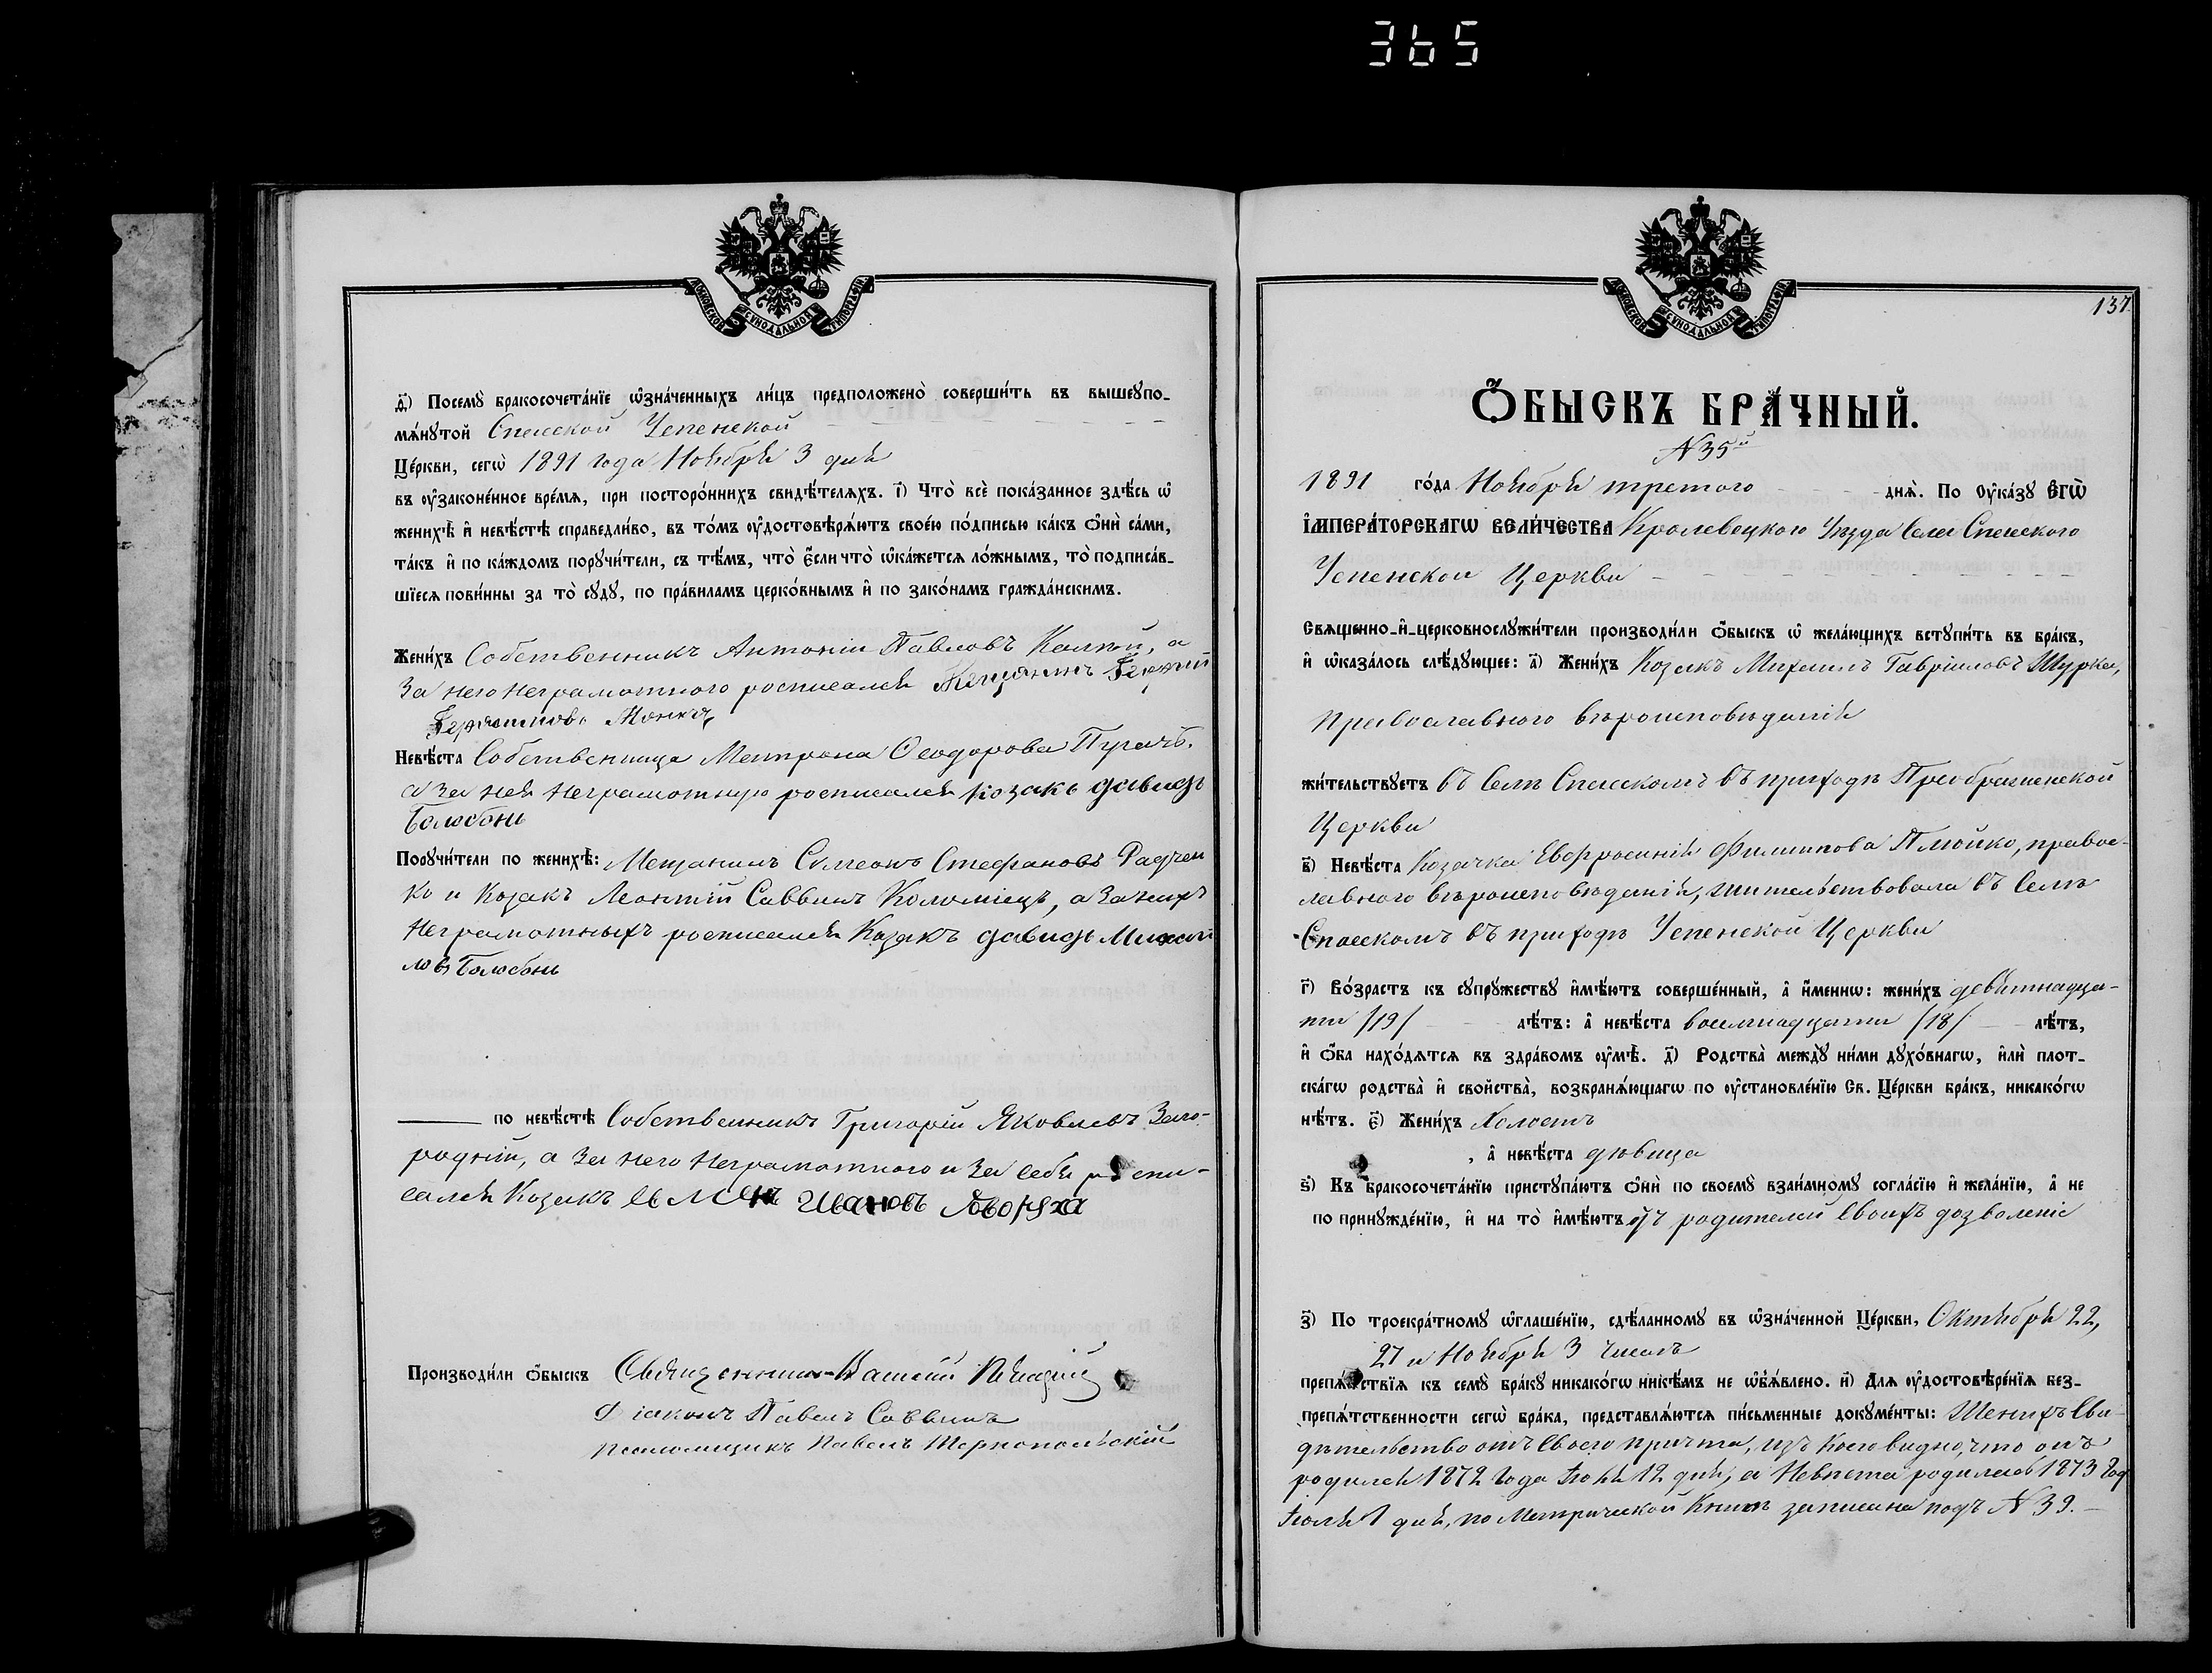 365
МОСКОВСКОЙ СѴНОДАЛЬНОЙ ТИПОГРАФІИ
д҃) Посемꙋ̀ бракосочета́нїе ѡ҆зна́ченныхъ ли́цъ предположено̀ соверши́ть въ вышеꙋпо-
мѧ́нꙋтой Спасской Успенской
Це́ркви, сегѡ̀ 1891 года Ноября 3 дня
въ ᲂу҆законе́нное вре́мѧ, при посторо́ннихъ свидѣ́телѧхъ. і҃) Что̀ всѐ пока́занное здѣ́сь ѡ҆
женихѣ̀ и҆ невѣ́стѣ справедли́во, въ то́мъ ᲂу҆достовѣрѧ́ютъ свое́ю по́дписью ка́къ ѻ҆нѝ са́ми,
та́къ и҆ по ка́ждомъ порꙋчи́тели, съ тѣ́мъ, что̀ є҆́сли что̀ ѡ҆ка́жется ло́жнымъ, то̀ подписа́в-
шїеся пови́нны за то̀ сꙋдꙋ̀, по пра́виламъ церко́внымъ и҆ по зако́намъ гражда́нскимъ.
Жени́хъ Собственникъ Антоній Павловъ Калтай, а
за него неграмотного росписался Мещанинъ
Невѣ́ста Собственница Матрона Ѳеодорова Пугачъ,
а за нея неграмотную росписался козакъ давидъ
Болобонь
Порꙋчи́тели по женихѣ̀: Мещанинъ Сѵмеонъ Стефановъ Радчен
ко и Козакъ Леонтій Саввинъ Коломіецъ, а за нихъ
неграмотныхъ росписался Козакъ давидъ Михай
ловъ Болобонь
по невѣ́стѣ Собственникъ Григорій Яковлевъ Заго-
родній, а за него неграмотного и за себя роспи-
сался Козакъ Ивановъ
Производи́ли ѻ҆́быскъ Священникъ Василій
Діаконъ Павелъ Саввинъ
псаломщикъ Павелъ Тернопольскій
МОСКОВСКОЙ СѴНОДАЛЬНОЙ ТИПОГРАФІИ
137.
Ѻ҆́БЫСКЪ БРА́ЧНЫЙ.
N 35й
1891 го́да Ноября третого днѧ̀. По ᲂу҆ка́зꙋ Є҆ГѠ̀
І҆МПЕРА́ТОРСКАГѠ ВЕЛИ́ЧЕСТВА Кролевецкого Уѣзда Села Спасского
Успенской Церкви
Священно-и҆-церковнослꙋжи́тели производи́ли ѻ҆́быскъ ѡ҆ жела́ющихъ встꙋпи́ть въ бра́къ,
и҆ ѡ҆каза́лось слѣ́дꙋющее: а҃) Жени́хъ Козакъ Михаилъ Гавріиловъ Шурка,
Православного вѣроисповѣданія
жи́тельствꙋетъ въ Селѣ Спасскомъ въ приходѣ Преображенской
Церкви
в҃) Невѣ́ста Козачка Евфросинія Филиппова Плюйко, правос-
лавного вѣроисповѣданія, жительствовала въ Селѣ
Спасскомъ въ приходѣ Успенской Церкви
г҃) Во́зрастъ къ сꙋпрꙋ́жествꙋ и҆мѣ́ютъ соверше́нный, а҆ и҆́меннѡ: жени́хъ девятнадца-
ти /19/ лѣ́тъ: а҆ невѣ́ста восемнадцати /18/ лѣ́тъ,
и҆ ѻ҆́ба нахо́дѧтсѧ въ здра́вомъ ᲂу҆мѣ̀. д҃) Родства̀ междꙋ̀ ни́ми дꙋхо́внагѡ, и҆лѝ плот-
ска́гѡ родства̀ и҆ свойства̀, возбранѧ́ющагѡ по ᲂу҆становле́нїю Св. Це́ркви бра́къ, никако́гѡ
нѣ́тъ. є҃) Жени́хъ Холостъ
, а҆ невѣ́ста дѣвица
ѕ҃) Къ бракосочета́нїю пристꙋпа́ютъ ѻ҆нѝ по своемꙋ̀ взаи́мномꙋ согла́сїю и҆ жела́нїю, а҆ не
по принꙋжде́нїю, и҆ на то̀ и҆мѣ́ютъ отъ родителей своихъ дозволеніе
з҃) По троекра́тномꙋ ѡ҆глаше́нїю, сдѣ́ланномꙋ въ ѡ҆зна́ченной Це́ркви, Октября 22,
27 и Ноября 3 чиселъ
препѧ́тствїѧ къ семꙋ̀ бра́кꙋ никако́гѡ никѣ́мъ не ѡ҆бъѧ́влено. и҃) Для ᲂу҆достовѣре́нїѧ без-
препѧ́тственности сегѡ̀ бра́ка, представлѧ́ются пи́сьменные докꙋме́нты: Женихъ сви-
дѣтельство отъ своего причта, изъ коего видно, что онъ
родился 1872 года Іюня 12 дня, а Невѣста родилась 1873 год
Іюля 1 дня, по Метрической Книгѣ записана подъ N 39.